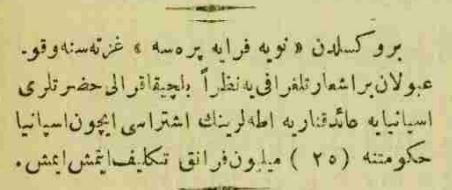 بروكسلدن « نويه فرايه پره سه » غزته سنه وقو-
عبولان بر اشعار تلغرافى يه نظراً بلچيقا قرالى حضرتلرى
اسپانيايه عائد قناريه اطه لرينك اشتراسى ايچون اسپانيا
حكومتنه ( ٢٥ ) ميليون فرانق تكليف ايتمش ايمش .